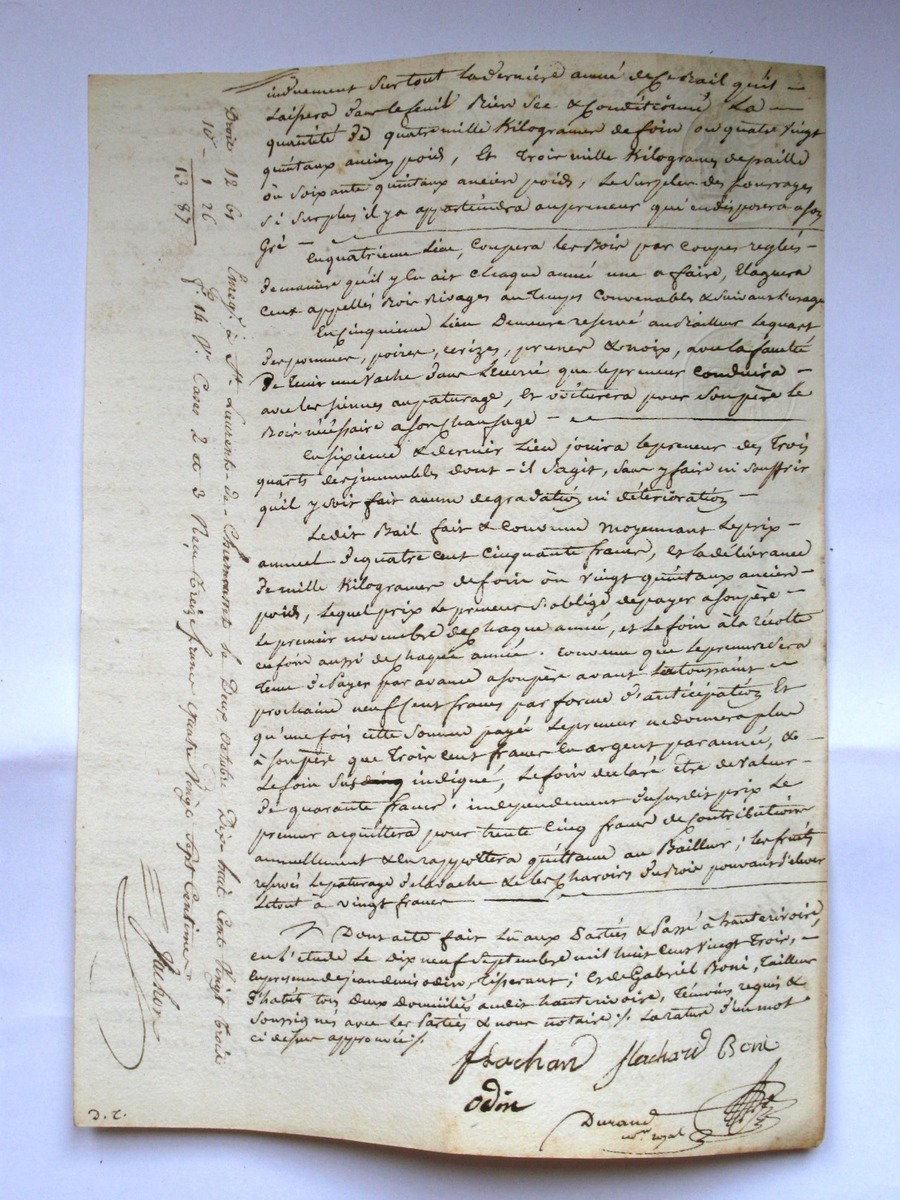 surtout la dernière année de ce Bail qu'il
Laissera dans le fenil Bien Sec & Conditionné La
quantité de quatre mille Kilogrames de foin ou quatre vingt
quintaux ancien poids, Et Trois mille Kilogrames de paille
ou Soixante quintaux ancien poids, Le Surplus des fourrages
Si Surplus il y a appartiendra au preneur qui en disposera a son
Gré
En quatrieme Lieu, Coupera les Bois par coupes reglées
de maniere qu'il y en ait chaque année une a faire, Elaguera
Ceux appellés Bois Rivages au Temps Convenables & Suivant l'usage
En Cinquieme Lieu Demeure reservé au Bailleur Le quart
des pommes, poires, cerizes, prunes & noix, avec la faculté
De Tenir une vache dans L'écurie que le preneur conduira
avec les siennes au paturage, Et voiturera pour Son père Le
Bois nécéssaire a son chauffage
En Sixieme & dernier Lieu jouira le preneur des Trois
quarts des immeubles dont il S'agit, Sans y faire ni Souffrir
qu'il y soit fait aucune degradation ni détérioration
Ledit Bail fait & Convenu moyennant Le prix
annuel de quatre cent Cinquante francs, Et la délivrance
de mille Kilogrames de foin ou vingt quintaux ancien
poids, Lequel prix Le preneur S'oblige de payer a Son père
Le premier novembre de chaque année, et Le foin à la récolte
en foin aussi de chaque année. Convenu que Le preneur Sera
Tenu de Payer par avance a Son père avant La Toussaint
prochaine neuf Cent francs par forme d'anticipation Et
qu'une fois cette Somme payée Le preneur ne donnera plus
à Son père que Trois Cent francs En argent par année, &
Le foin Sus indiqué, Le foin declaré être de valeur
de quarante francs; independament du Susdit prix Le
preneur acquittera pour trente Cinq francs de Contributions
annuellement & En rapportera quittance au Bailleur; les fruits
reservés Le paturage de la vache & les charois du Bois pouvant S'elever
Le tout à vingt francs
Dont acte fait Lu aux Parties & Passé à hauterivoire,
en L'étude Le dix neuf Septembre mil huit Cent vingt Trois,
En presence de jean denis odin, Tisserant; Et de Gabriel Boné, Tailleur
D'habits tous deux domiciliés audit hauterivoire, Témoins requis &
Soussignés avec Les Parties & nous notaire ./. La rature d'un mot
ci dessus approuvée ./.
flachard flachard Boné
odin
Durand
no.re royal
Droits 12 61
10e 1 26
13 87
Enreg.é à St. Laurent de Chamousset le Deux octobre Dix huit Cent Vingt Trois
f.o 14 V.o Cases 2 & 3 Reçu Treize francs quatre Vingt Sept Centimes